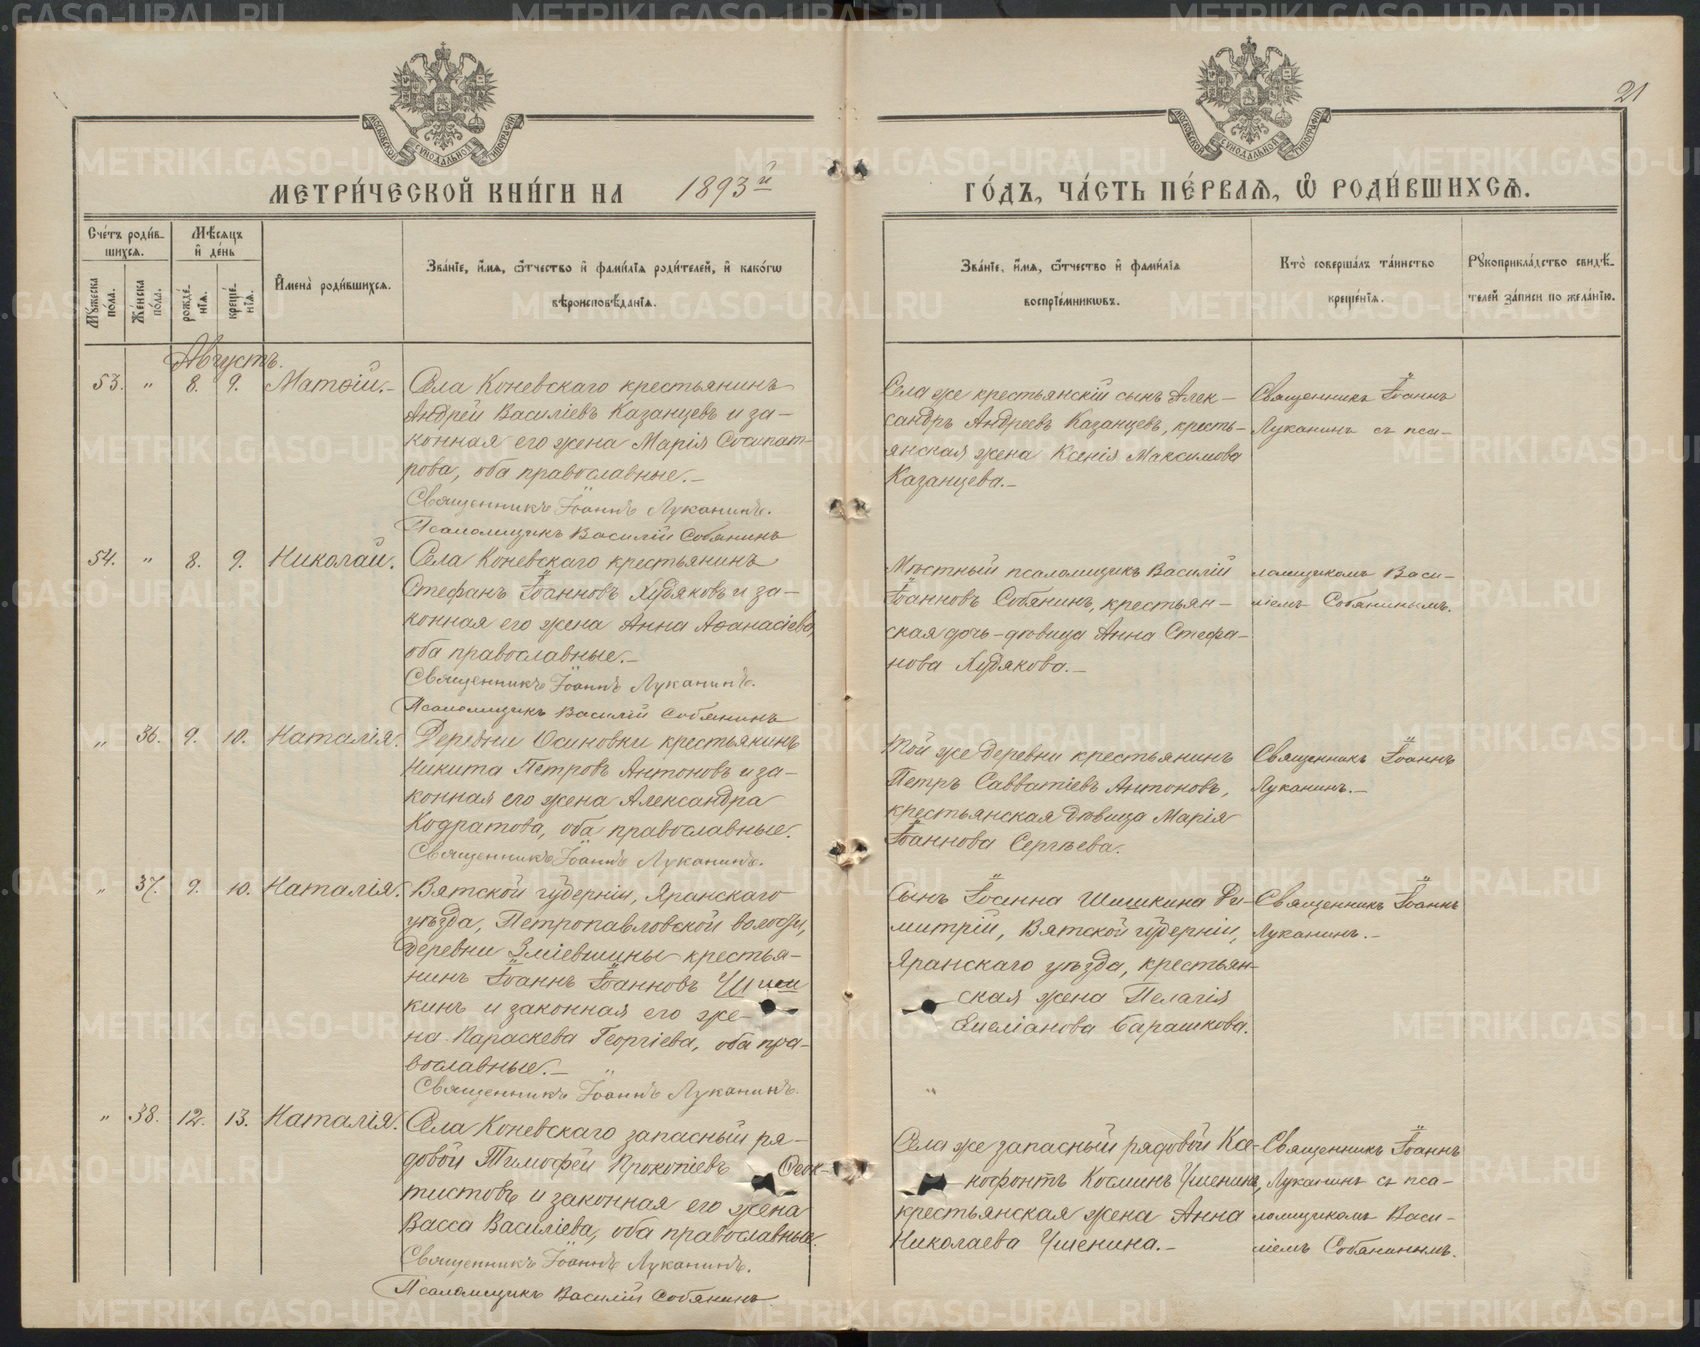 21
МЕТРИ́ЧЕСКОЙ КНИ́ГИ НА 1893й
ГО́ДЪ, ЧА́СТЬ ПЕ́РВАѦ, Ѽ РОДИ́ВШИХСѦ.
Сче́тъ роди́в-
шихся.
Мѹжеска по́ла.
Же́нска по́ла.
Мѣ́сяцъ
и҆ де́нь
рожде́-
нїя.
креще́-
нїя.
И҆мена̀ роди́вшихся.
Зва́нїе, и҆́мя, ѻ҆́тчество и҆ фами́лїя роди́телей, и҆ како́гѡ
вѣроисповѣ́данїя.
Зва́нїе, и҆́мя, ѻ҆́тчество и҆ фами́лїя
воспрїе́мникѡвъ.
Кто̀ соверша́лъ та́инство
креще́нїя.
Рѹкоприкла́дство свидѣ́-
телей за́писи по жела́нїю.
Августъ.
53. " 8. 9. Матѳій.-
Села Коневскаго крестьянинъ
Андрей Василіевъ Казанцевъ и за-
конная его жена Марія Сосипат-
рова, оба православные.-
Священникъ Іоаннъ Луканинъ.
Псаломщикъ Василій Собянинъ
Села же крестьянскій сынъ Алек-
сандръ Андреевъ Казанцевъ, кресть-
янская жена Ксенія Максимова
Казанцева.-
Священникъ Іоаннъ
Луканинъ съ пса-
54. " 8. 9. Николай.
Села Коневскаго крестьянинъ
Стефанъ Іоанновъ Худяковъ и за-
конная его жена Анна Аѳанасіева,
оба православные.-
Священникъ Іоаннъ Луканинъ.
Псаломщикъ Василій Собянинъ
Мѣстный псаломщикъ Василій
Іоанновъ Собянинъ, крестьян-
ская дочь-дѣвица Анна Стефа-
нова Худякова.-
ломщикомъ Васи-
ліемъ Собянинымъ.
" 36. 9. 10. Наталія.
Деревни Осиновки крестьянинъ
Никита Петровъ Антоновъ и за-
конная его жена Александра
Кодратова, оба православные.
Священникъ Іоаннъ Луканинъ.
Той же деревни крестьянинъ
Петръ Савватіевъ Антоновъ,
крестьянская дѣвица Марія
Іоаннова Сергѣева.
Священникъ Іоаннъ
Луканинъ.-
" 37. 9. 10. Наталія.
Вятской губерніи, Яранскаго
уѣзда, Петропавловской волости,
деревни Зміевщины крестья-
нинъ Іоаннъ Іоанновъ Шиш
кинъ и законная его же-
на Параскева Георгіева, оба пра-
вославные.-
Священникъ Іоаннъ Луканинъ.
Сынъ Іоанна Шишкина Ди-
митрій, Вятской губерніи,
Яранскаго уѣзда, крестьян-
ская жена Пелагія
Емеліанова Барашкова.
Священникъ Іоаннъ
Луканинъ.-
" 38. 12. 13. Наталія.
Села Коневскаго запасный ря-
довой Тимофей Прокопіевъ Ѳеок-
тистовъ и законная его жена
Васса Василіева, оба православные.
Священникъ Іоаннъ Луканинъ.
Псаломщикъ Василій Собянинъ
Села же запасный рядовой Кс-
нофонтъ Косминъ Ушенинъ,
крестьянская жена Анна
Николаева Ушенина.-
Священникъ Іоаннъ
Луканинъ съ пса-
ломщикомъ Васи-
ліемъ Собянинымъ.
METRIKI.GASO-URAL.RU